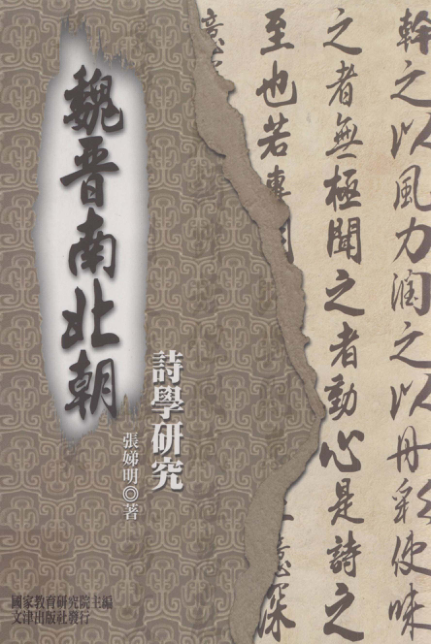 魏晉南北朝
詩學研究
張娣明◎著
國家教育研究院主編
文津出版社發行
幹之以風力潤之以丹彩使味
之者無極聞之者動心是詩之
至也若專
深